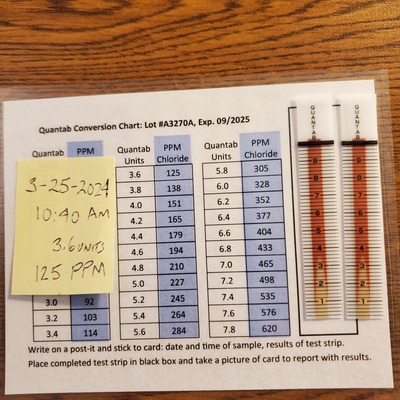 Quantab Conversion Chart: Lot #A3270A, Exp. 09/2025
Quantab PPM
3.0 92
3.2 103
3.4 114
3-25-2024
10:40 AM
3.6 UNITS
125 PPM
Quantab Units PPM Chloride
3.6 125
3.8 138
4.0 151
4.2 165
4.4 179
4.6 194
4.8 210
5.0 227
5.2 245
5.4 264
5.6 284
Quantab Units PPM Chloride
5.8 305
6.0 328
6.2 352
6.4 377
6.6 404
6.8 433
7.0 465
7.2 498
7.4 535
7.6 576
7.8 620
QUANTAB
9
8
7
6
5
4
3
2
1
QUANTAB
9
8
7
6
5
4
3
2
1
Write on a post-it and stick to card: date and time of sample, results of test strip.
Place completed test strip in black box and take a picture of card to report with results.